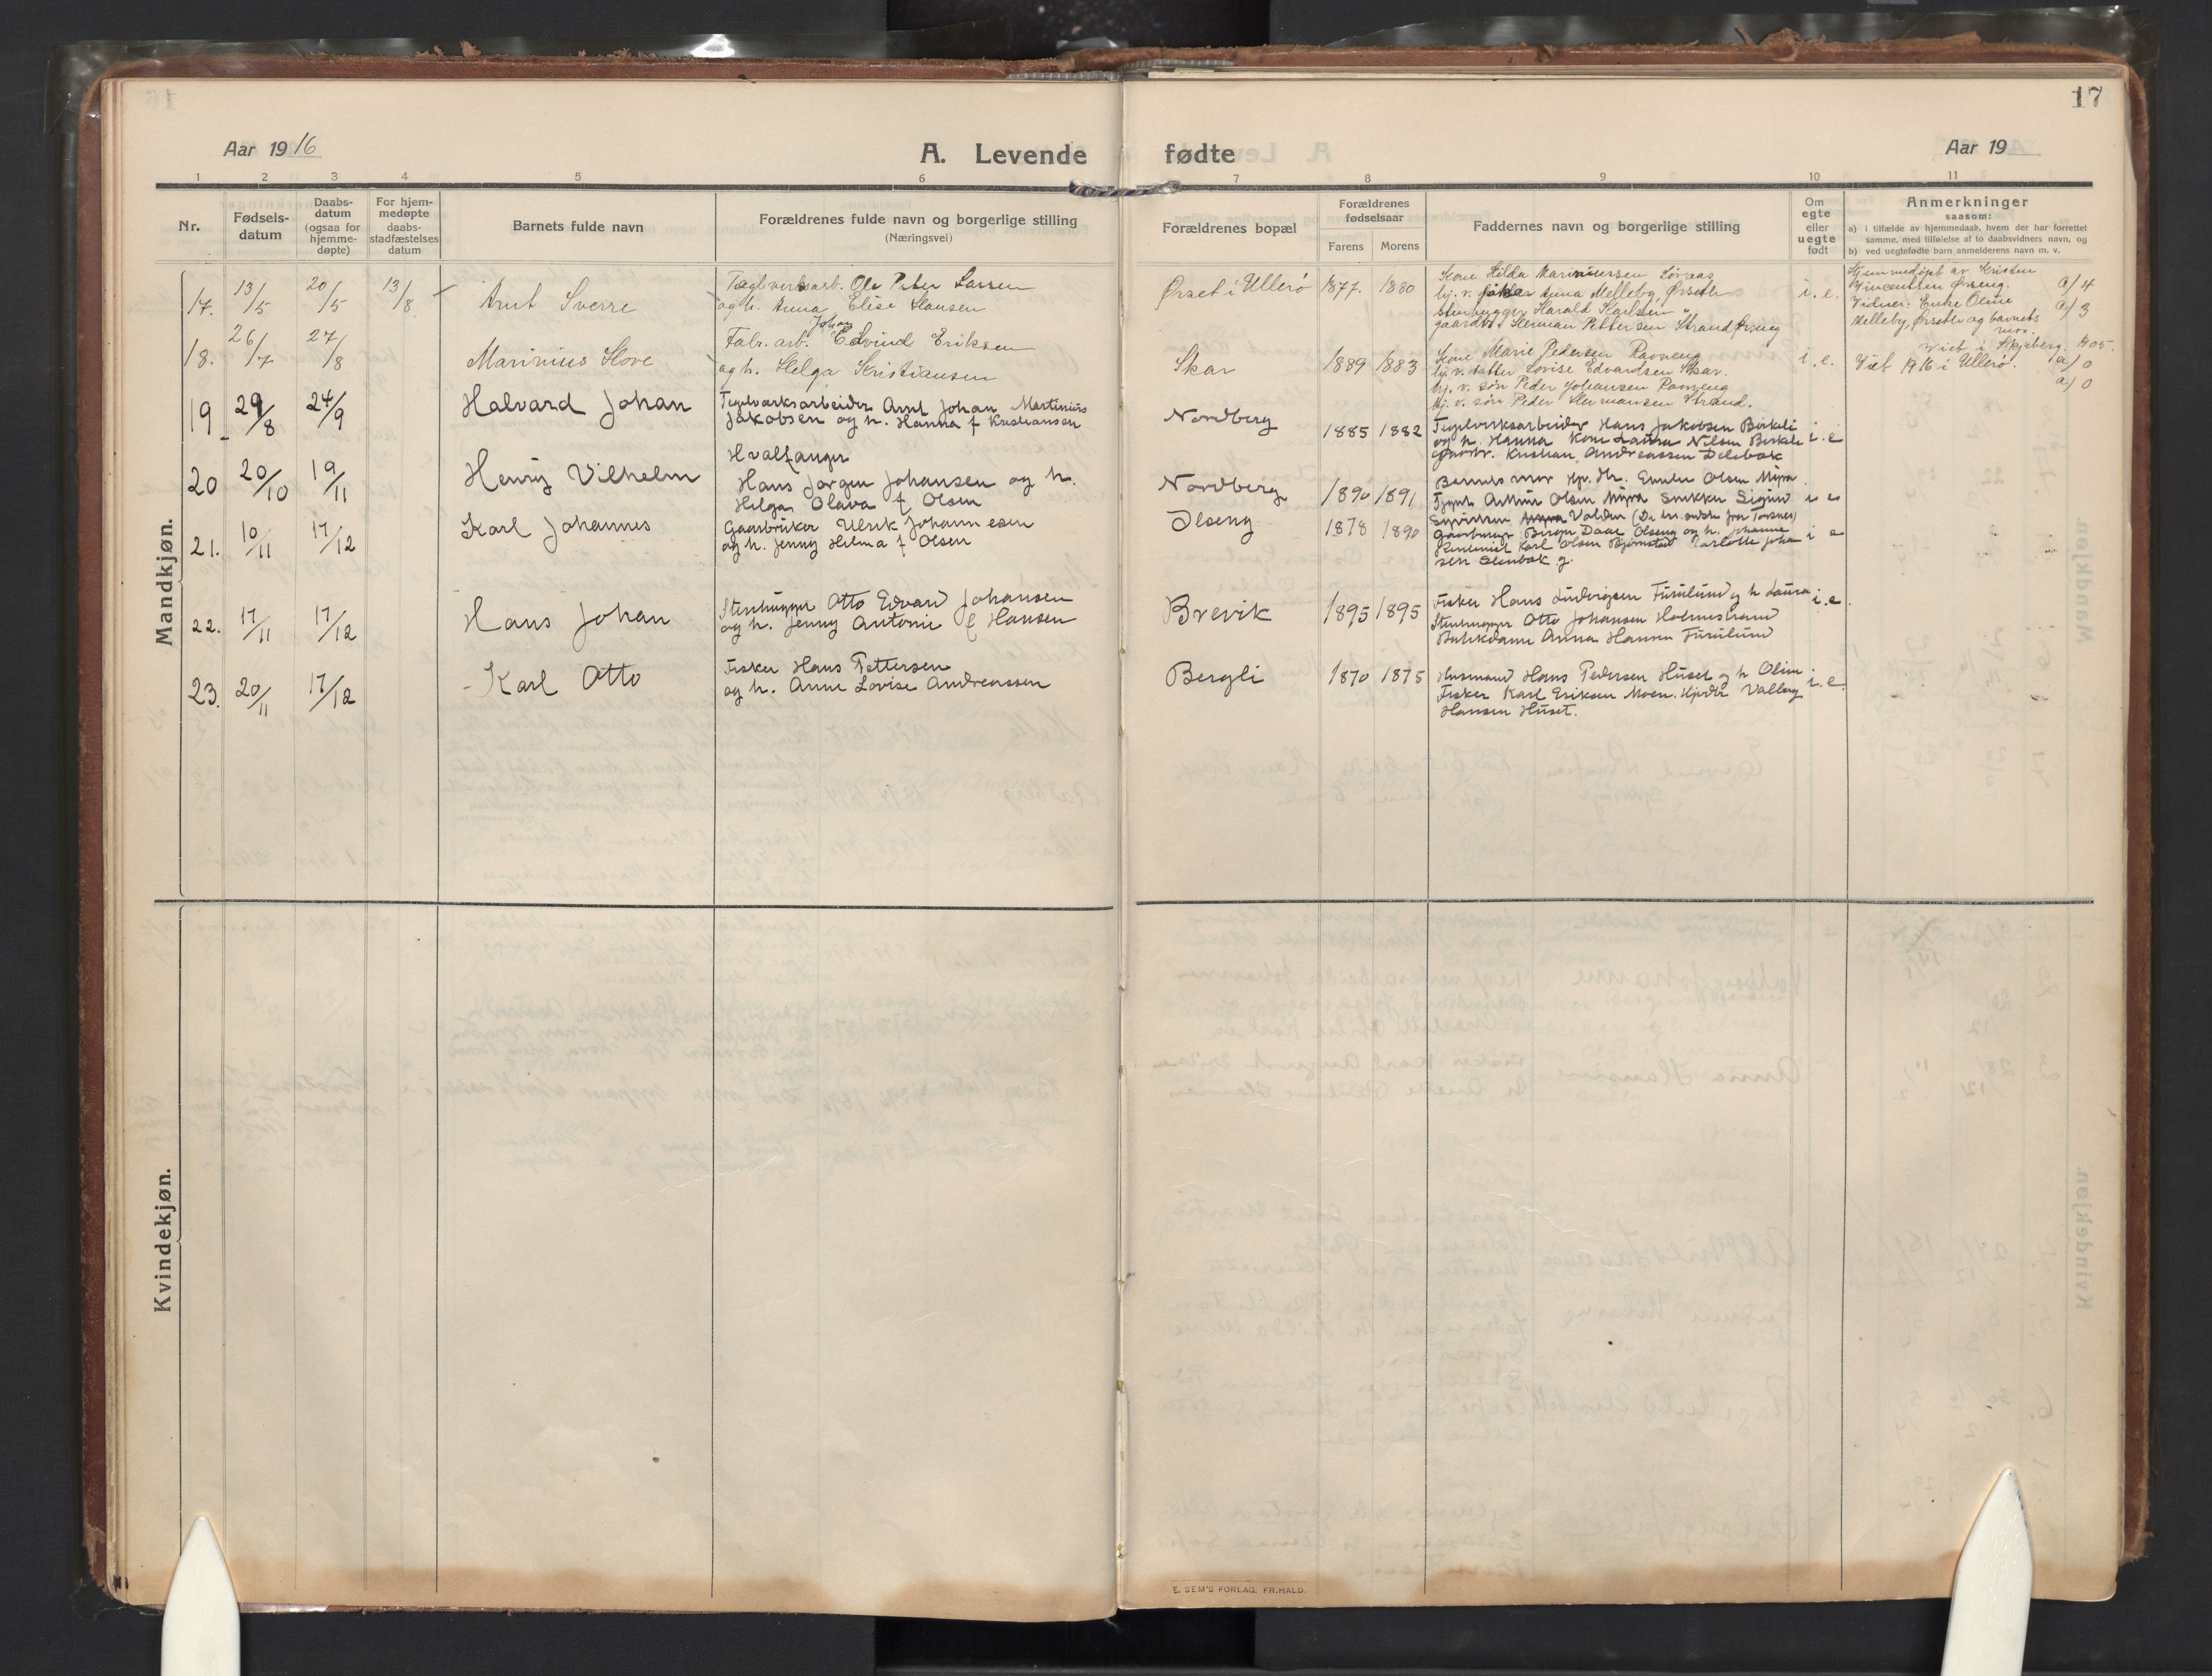 17
Aar 1916
A. Levende fødte
Aar 19
1 2 3 4 5 6 7 8 9 10 11
Nr.
Fødsels-
datum
Daabs-
datum
(ogsaa for
hjemme-
døpte)
For hjem-
medøpte
daabs-
stadfæstelses
datum
Barnets fulde navn
Forældrenes fulde navn og borgerlige stilling
(Næringsvei)
Forældrenes bopæl
Forældrenes
fødselsaar
Farens Morens
Faddernes navn og borgerlige stilling
Om
egte
eller
uegte
født
Anmerkninger
saasom:
a) i tilfælde av hjemmedaab, hvem der har forrettet
samme, med tilføielse af to daabsvidners navn, og
b) ved uegtefødte barn anmelderens navn m. v.
Mandkjøn.
17. 13/5 20/5 13/8 Arnt Sverre
Teglverksarb. Ole Peter Larsen
og h. Anna Elise Hansen
Ørset i Ullerø 1877. 1880
Kone Hilda Marinussen
hj. v. Anna Melleby, Ørseth
Harald Karlsen
gaardbr. Herman Pettersen Strand Ørseng
i. e.
Hjemmedøpt av Kristen
Vincentsen Ørseng. a/4
Vidner: Enke Oline a/3
Melleby, Ørseth og barnets
mor.
18. 26/7 27/8 Marinius Hove
Johan
Fabr. arb. Edvind Eriksen
og h. Helga Kristiansen
Skar 1889 1883
Kone Marie Pedersen Ravneng
hj. v. datter Lovise Edvardsen Skar.
hj. v. søn Peder Johansen Ravneng
hj. v. søn Peder Hermansen Strand.
i. e.
Viet i Skjeberg. H05.
Viet 1916 i Ullerø. a/0
a/0
19 29/8 24/9 Halvard Johan
Teglværksarbeider Arnt Johan Martinius
Jakobsen og h. Hanna f Kristiansen
Nordberg 1885 1882
Teglverksarbeider Hans Jakobsen Birkeli
og h. Hanna Kone Laura Nilsen Birkeli
gaardbr. Kristian Andreassen Delebæk
i. e
20 20/10 19/11 Henry Vilhelm
Hvalfanger
Hans Jørgen Johansen og h.
Helga Olava f Olsen
Nordberg 1890 1891
Barnets mor Emilie Olsen Myra
Arthur Olsen Myra Snikker Sigurd
i e
21. 10/11 17/12 Karl Johannes
Gaarbruker Ulrik Johannesen
og h. Jenny Helma f Olsen
Olseng 1878 1890
Gaarbruger Birger Daae Olseng og h. Johanne
Karl Olsen Bjørnstad Carlotte Johan
sen Stenbæk g.
i e
22. 17/11 17/12 Hans Johan
Stenhugger Otto Edvard Johansen
og h. Jenny Antonie f Hansen
Brevik 1895 1895
Fisker Hans Ludvigsen Furulund og h Laura
Stenhugger Otto Johansen Holmestrand
Butikdame Anna Hansen Furulund
i. e.
23. 20/11 17/12 Karl Otto
Fisker Hans Pettersen
og h. Anne Lovise Andreassen
Bergli 1870 1875
Husmand Hans Pedersen Huset og h Oline
Fisker Karl Eriksen Moen. Valborg
Hansen Huset.
i. e.
Kvindekjøn.
E. SEM'S FORLAG, FR.HALD.